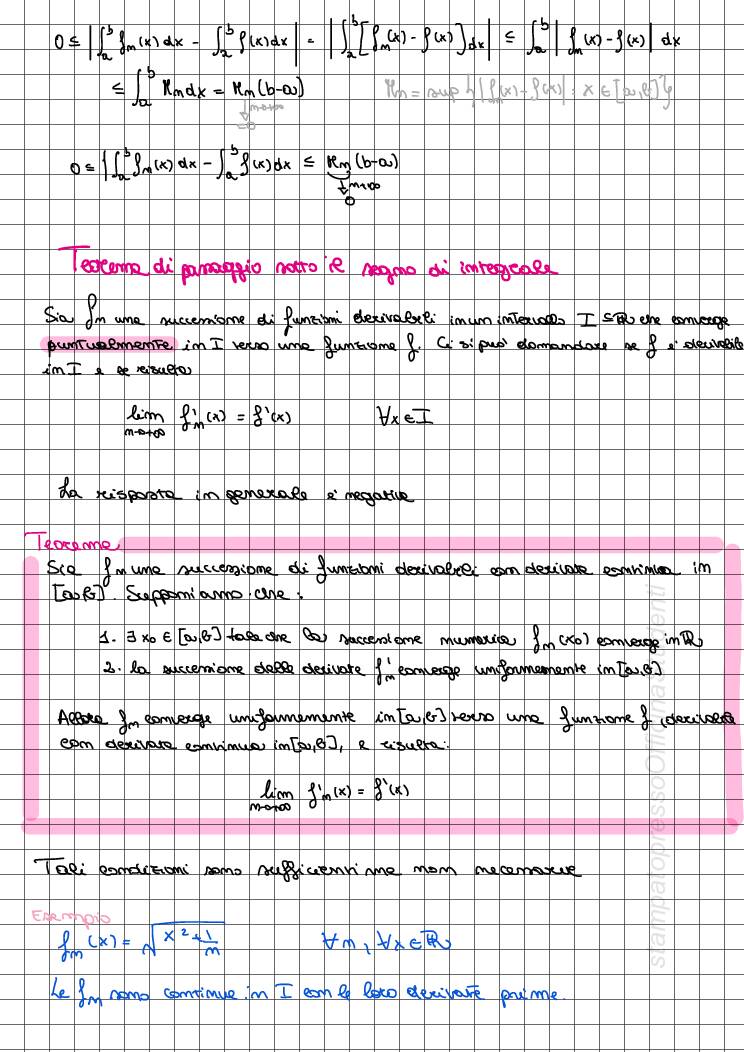 0 ≤ |∫_a^b f_n(x) dx - ∫_a^b f(x) dx| = |∫_a^b [f_n(x) - f(x)] dx| ≤ ∫_a^b |f_n(x) - f(x)| dx
≤ ∫_a^b M_n dx = M_n (b-a) M_n = sup {|f_n(x) - f(x)| : x ∈ [a,b]}
n→+∞
→0
0 ≤ |∫_a^b f_n(x) dx - ∫_a^b f(x) dx ≤ M_n (b-a)
n→+∞
0
Teorema di passaggio sotto il segno di integrale
Sia f_n una successione di funzioni derivabili in un intervallo I ⊆ ℝ che converge
puntualmente in I verso una funzione f. Ci si può domandare se f è derivabile
in I e se risulta
lim f'_n(x) = f'(x) ∀x ∈ I
n→+∞
La risposta in generale è negativa
Teorema
Sia f_n una successione di funzioni derivabili con derivata continua in
[a,b]. Supponiamo che:
1. ∃ x_0 ∈ [a,b] tale che la successione numerica f_n(x_0) converge in ℝ
2. la successione delle derivate f'_n converge uniformemente in [a,b]
Allora f_n converge uniformemente in [a,b] verso una funzione f, derivabile
con derivata continua in [a,b], e risulta:
lim f'_n(x) = f'(x)
n→+∞
Tali condizioni sono sufficienti ma non necessarie
Esempio
f_n(x) = √(x² + 1/n) ∀n, ∀x ∈ ℝ
Le f_n sono continue in I con le loro derivate prime.